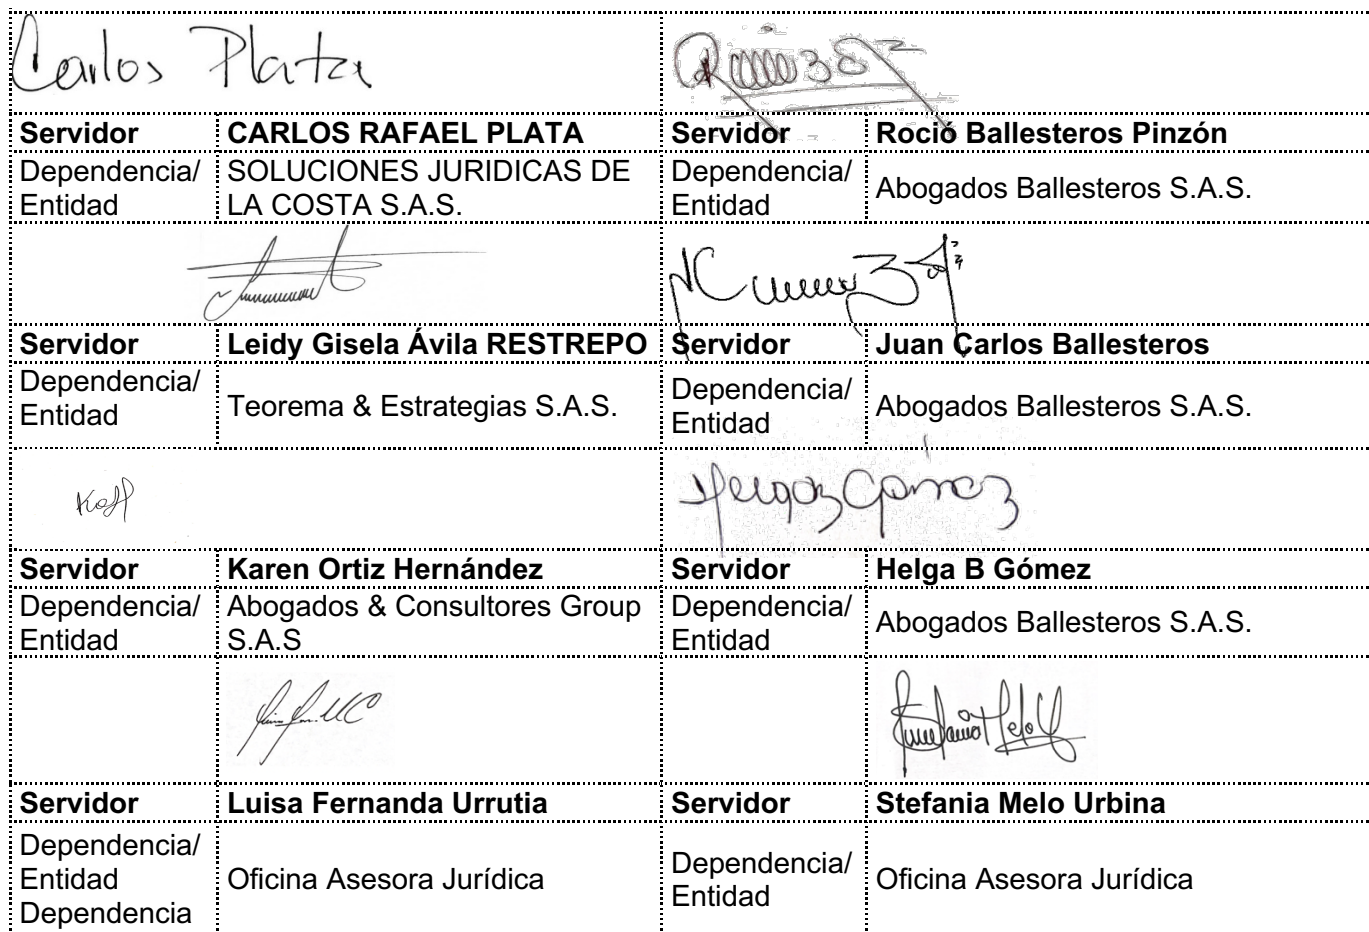 Carlos Plata
Servidor CARLOS RAFAEL PLATA Servidor Roció Ballesteros Pinzón
Dependencia/ SOLUCIONES JURIDICAS DE Dependencia/
Entidad LA COSTA S.A.S. Entidad Abogados Ballesteros S.A.S.
Servidor Leidy Gisela Ávila RESTREPO Servidor Juan Carlos Ballesteros
Dependencia/ Dependencia/
Entidad Teorema & Estrategias S.A.S. Entidad Abogados Ballesteros S.A.S.
Gómez
Servidor Karen Ortiz Hernández Servidor Helga B Gómez
Dependencia/ Abogados & Consultores Group Dependencia/
Entidad S.A.S Entidad Abogados Ballesteros S.A.S.
Servidor Luisa Fernanda Urrutia Servidor Stefania Melo Urbina
Dependencia/
Entidad Oficina Asesora Jurídica Dependencia/ Oficina Asesora Jurídica
Dependencia Entidad